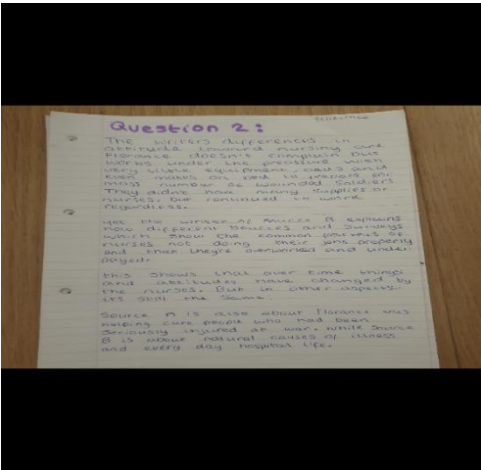 Question 2:
The writers differences in
attitude toward nursing are
Florance doesn't complain but
works under the pressure with
very little equipment, beds and
even makes on bed to prepare for
mass number of wounded soldiers
They didnt have many supplies or
nurses, but continued to work
regardless.
yet the writer of source B explains
how different sources and surveys
which show the common process of
nurses not doing their jobs properly
and that they're overworked and under
payed.
this shows that over time things
and attitudes have changed by
the nurses. But in other aspects
its still the same.
Source A is also about Florance was
helping cure people who had been
seriously injured at war. While Source
B is about natural causes of illness
and every day hospital life.